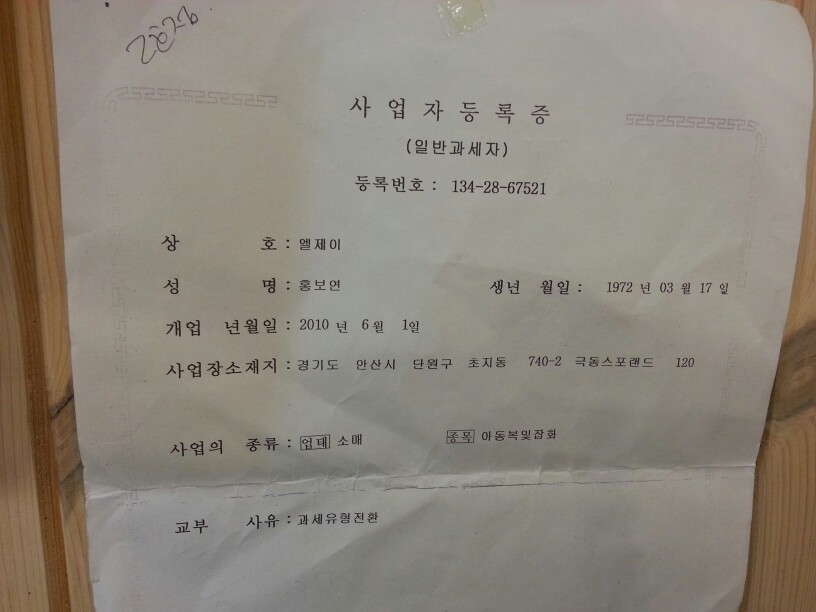 사업자등록증
(일반과세자)
등록번호 : 134-28-67521
상 호 : 엘제이
성 명 : 홍보연 생년 월일 : 1972 년 03 월 17 일
개업 년월일 : 2010 년 6 월 1 일
사업장소재지 : 경기도 안산시 단원구 초지동 740-2 극동스포랜드 120
사업의 종류 : 업태 소매 종목 아동복및잡화
교부 사유 : 과세유형전환